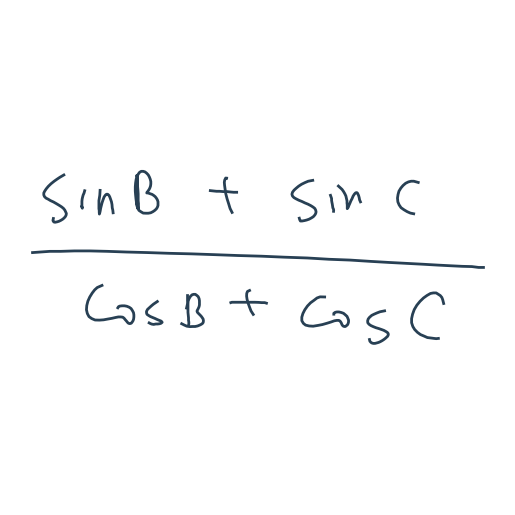 sinB + sin C
cosB + cos C